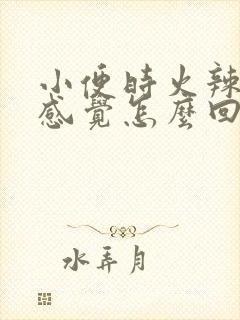 小便時火辣
感覺怎麼回
水弄月